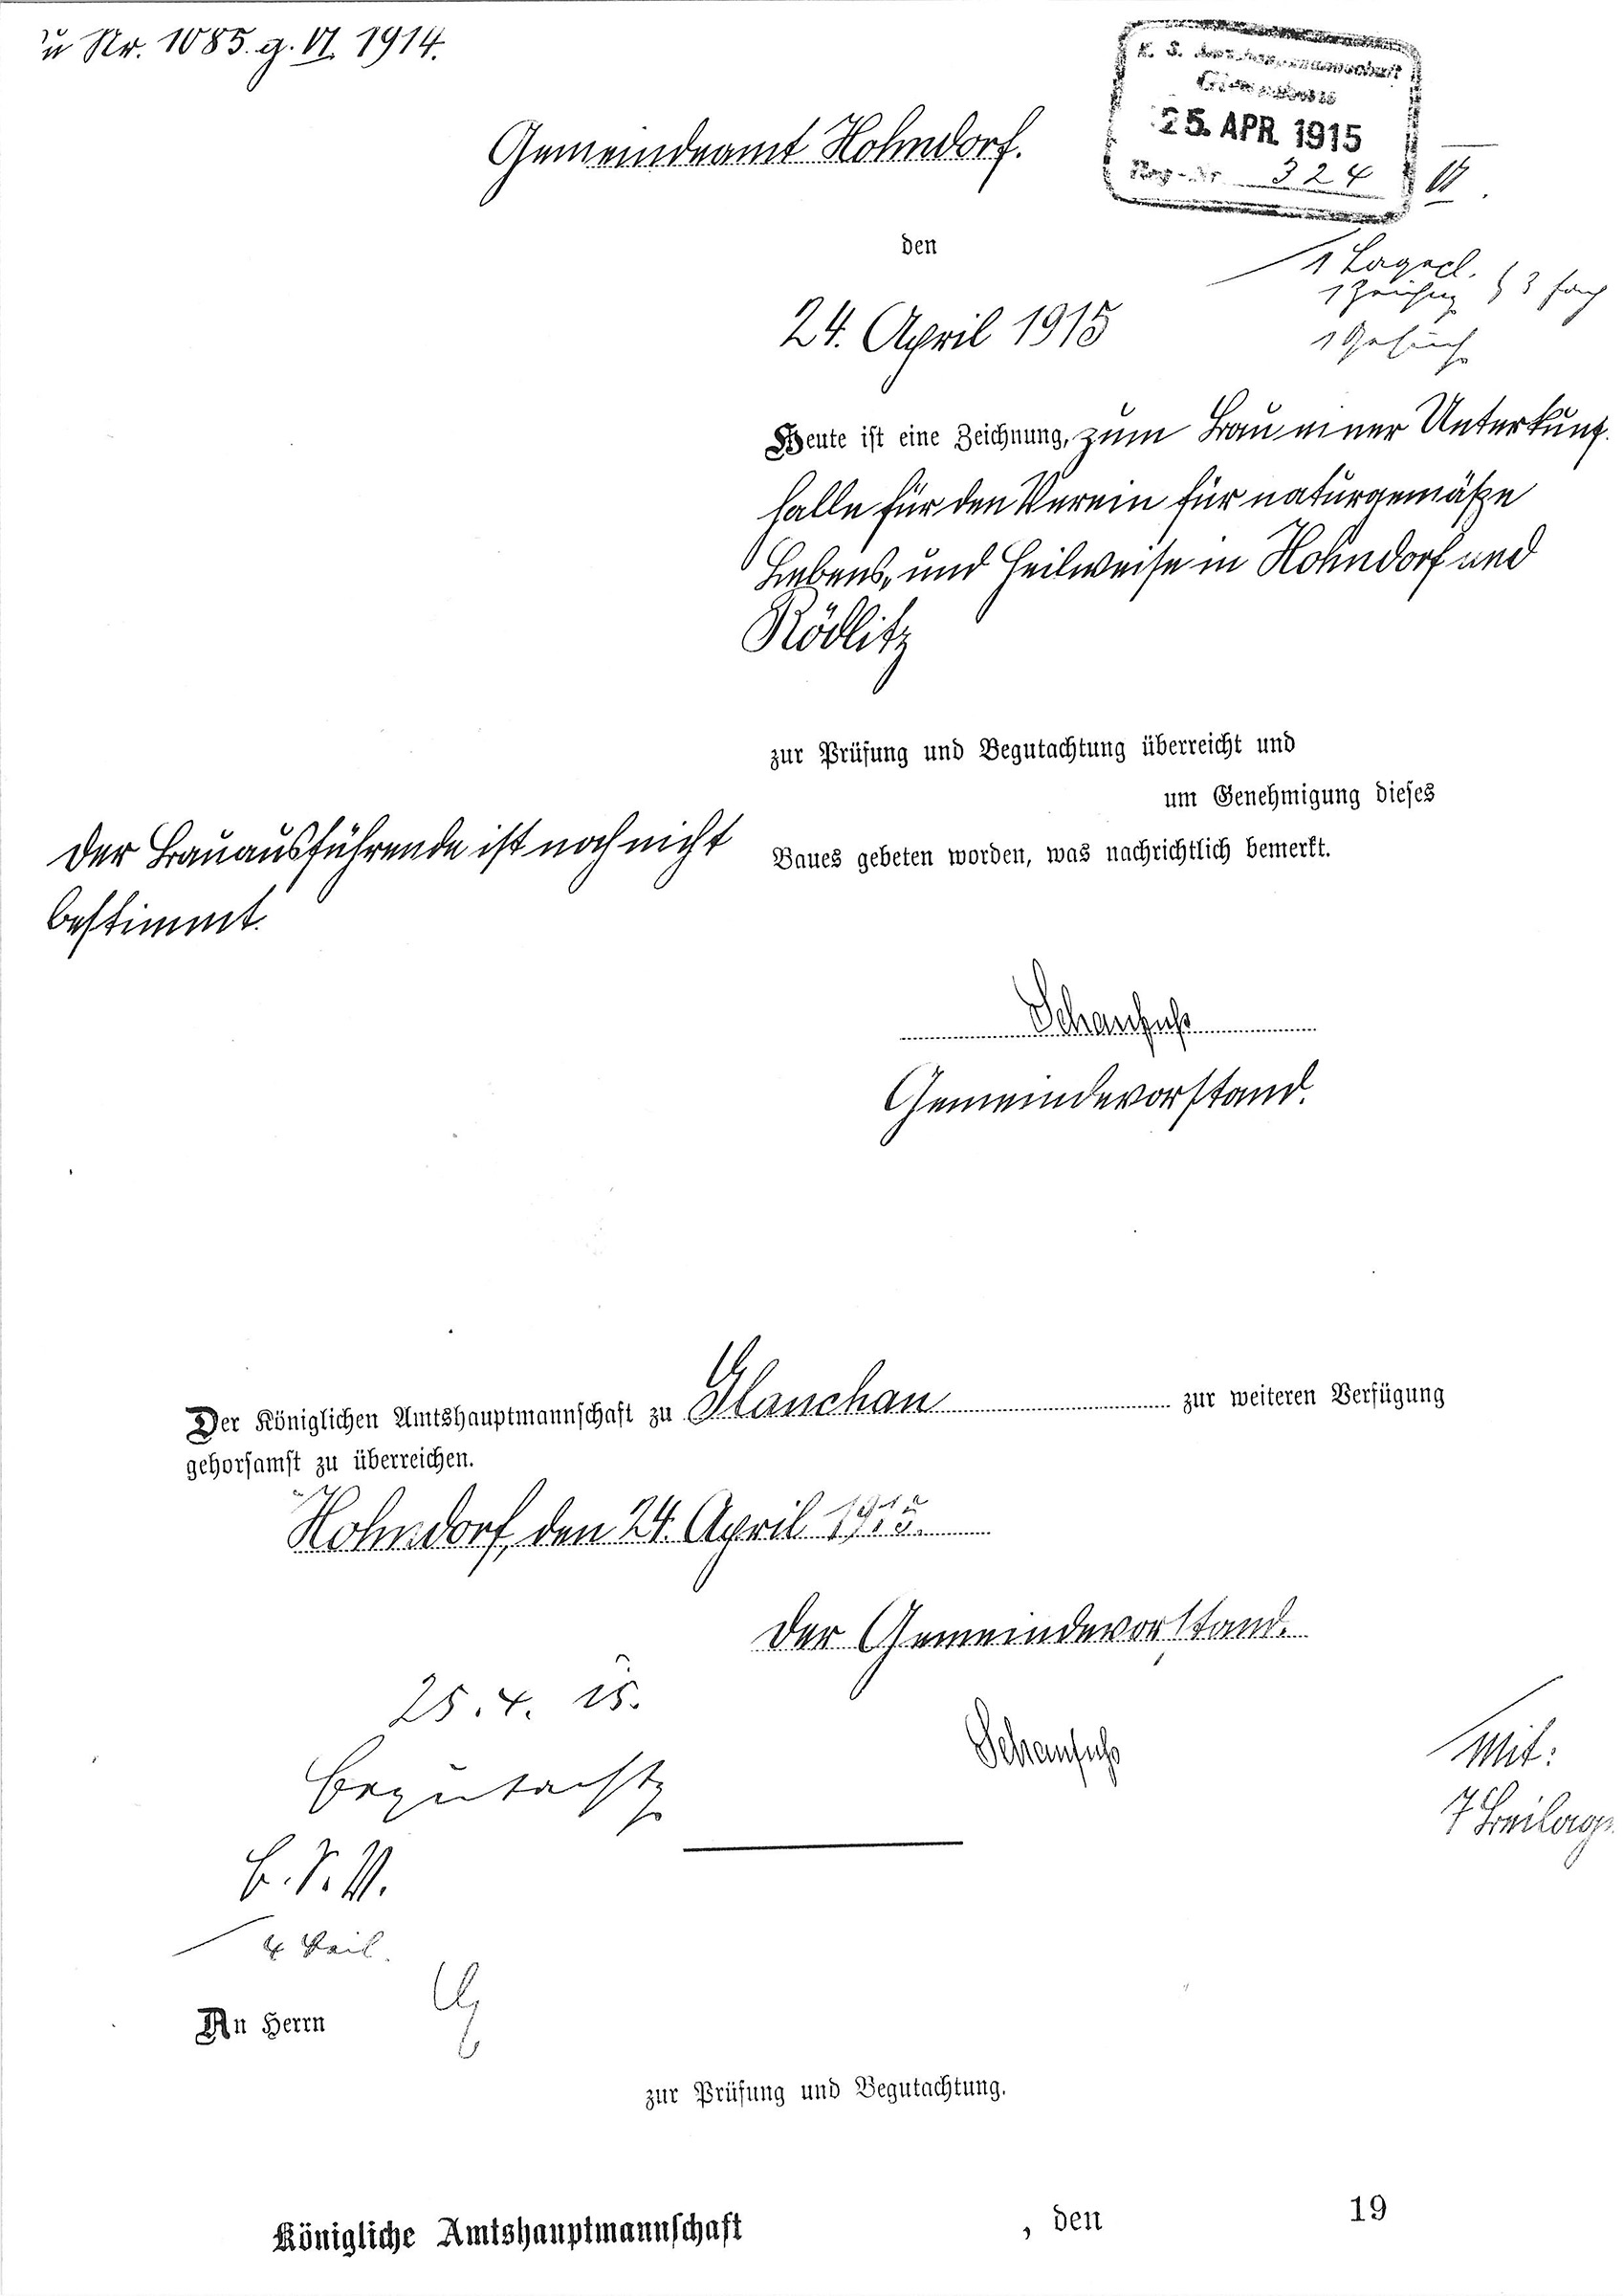 u Nr. 1085. g. VI. 1914.
K. S. Amtshauptmannschaft
Glauchau
25. APR. 1915
Reg.-Nr. 324 VI.
Gemeindeamt Hohndorf.
den
1 Lagepl.
1 Zeichng } 3 fach
1 Gesuch
24. April 1915
Heute ist eine Zeichnung, zum Bau einer Unterkunf
halle für den Verein für naturgemäße
Lebens- und Heilweise in Hohndorf und
Rödlitz
zur Prüfung und Begutachtung überreicht und
um Genehmigung dieses
Baues gebeten worden, was nachrichtlich bemerkt.
Der Bauausführende ist noch nicht
bestimmt.
Schaufuß
Gemeindevorstand.
Der Königlichen Amtshauptmannschaft zu Glauchau zur weiteren Verfügung
gehorsamst zu überreichen.
Hohndorf, den 24. April 1915.
Der Gemeindevorstand.
Schaufuß
Mit:
7 Beilag
25. 4. 15.
B. S. V.
4 Beil.
An Herrn
zur Prüfung und Begutachtung.
Königliche Amtshauptmannschaft , den 19